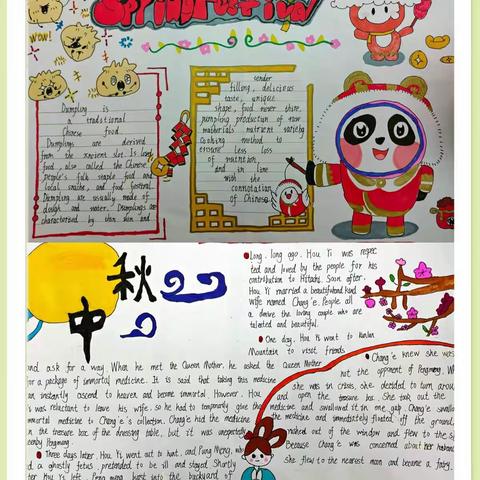 Spring Festival
WOW!
Dumpling is
a traditional
Chinese food.
Dumplings are derived
from the ancient
food, also called the Chinese
people's folk staple food and
local snacks, and food festival.
Dumpling are usually made of
dough and water. Dumplings are
characterized by thin skin and
tender
filling, delicious
taste, unique
shape, food never shine,
dumpling production of raw
materials nutrient variety
Cooking method to
ensure less loss
of nutrition,
and in line
with the
connotation
of Chinese
中秋
Long, long ago, Hou Yi was respec
ted and loved by the people for his
contribution to
Hou Yi married a beautiful and kind
wife named Chang'e. People all
a derive the loving couple who are
talented and beautiful.
One day, Hou Yi went to Kunlun
Mountain to visit friends
and ask for a way. When he met the Queen Mother, he asked the Queen Mother
for a package of immortal medicine. It is said that taking this medicine
an instantly ascend to heaven and become immortal. However, Hou
was reluctant to leave his wife, so he had to temporarily give the
immortal medicine to Chang'e's collection. Chang'e hid the medicine
in the treasure box of the dressing table, but it was unexpectedly
Three days later, Hou Yi went out to hunt, and Peng Meng, wh
d a ghostly fetus, pretended to be ill and stayed. Shortly
ter Hou Yi left, Peng meng burst into the backyard of
Chang'e knew she was
not the opponent of Pengmeng. Wh
she was in crisis, she decided to turn arou
and open the treasure box. She took out the
medicine and swallowed it in one gulp. Chang'e swallo
the medicine and immediately floated off the ground,
rushed out of the window and flew to the sk
Because Chang'e was concerned about her husband
she flew to the nearest moon and became a fairy.